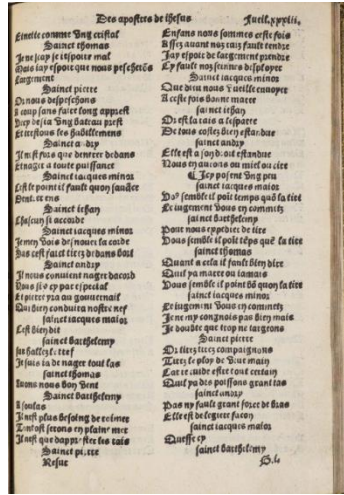 Des apostres de ihesus
Fueil.xxxiii.
Et nelle comme Ung cristal
Sainct thomas
Je ne scay se iespoire mal
Mais iay espoir que nous pescherõs
Largement
Sainct pierre
Or nous despeschons
A coup sans faire long apprest
Decy desia Ung bateau prest
Et trestous les habillemens
Sainct andry
Il nest fors que dentrer dedans
Et nager a toute puissance
Sainct iacques minor
Cest le point il fault quon sauãce
Dent.er ens
Sainct iehan
Chascun si accorde
Sainct iacques minor
Je men Vois desnouer la corde
Pas cest faict tirez dedans bort
Sainct andry
Il nous convient nager dacord
Vous six cy par especial
Et pierre yra au gouvernail
Qui bien conduira nostre nef
sainct iacques maior
Cest bien dit
sainct barthelemy
Je suis ia de nager tout las
sainct thomas
Avons nous bon Vent
Sainct barthelemy
A soulas
Il nest plus besoing de remer
Tantost serons en plaine mer
Il nest que dapprester les rais
Sainct pierre
Resur
Enfans nous sommes ceste fois
Assez avant noz raiz fault tendre
Jay espoir de largement prendre
Cy fault noz sennes desployer
Sainct iacques minor
Que dieu nous y vueille envoyer
A ceste fois bonne maree
sainct iehan
Or est la rais a lesparre
De tous costez bien estandue
sainct andry
Elle est a son droit estandue
Nous en aurons ou miel ou cire
Icy posent Ung peu
sainct iacques maior
Voº semble il poit temps quõ la tire
Le iugement Vous en commetz
sainct barthelemy
Pour nous expedier de tire
Vous semble il poit tẽps quẽ la tire
sainct thomas
Quant a cela il fault bien dire
Quil y a maree ou iamais
Vous semble il point bõ quon la tire
sainct iacques minor
Le iugement Vous en commetz
Je ne my congnois pas bien mais
Je doubte que trop ne targeons
Sainct pierre
Or tirez tirez compaignons
Tirez le ploy de Vostre main
Car ie cuide estre tout certain
Quil y a des poissons grant tas
sainct andry
Pas ny fault grant force de bras
Elle est de legiere facon
sainct iacques maior
Quesse cy
sainct barthelemy